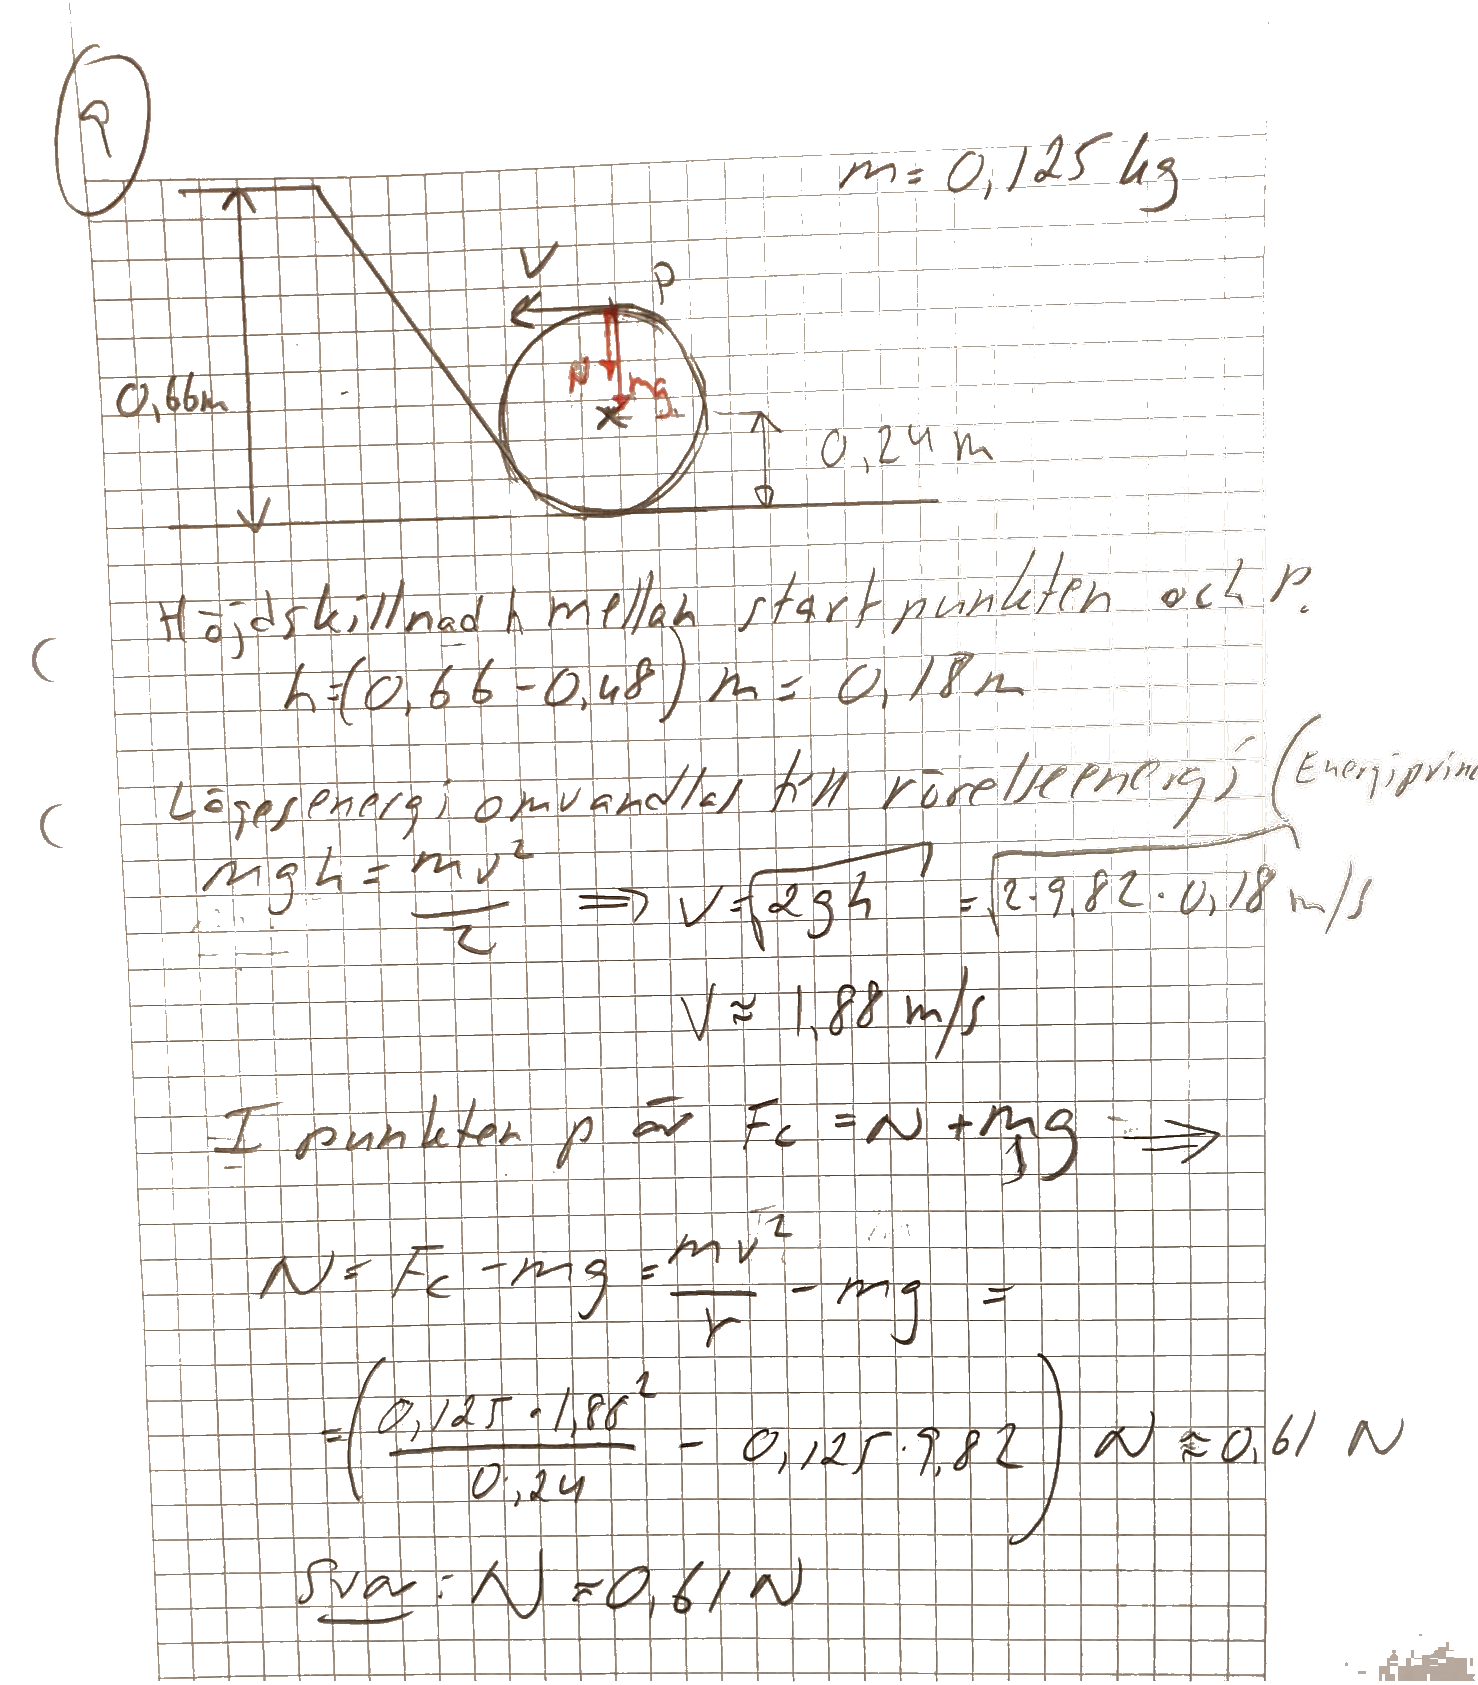 9
m = 0,125 kg
V
P
N
mg
0,66m
0,24 m
Höjdskillnad h mellan startpunkten och P.
h = (0,66 - 0,48) m = 0,18 m
Lägesenergi omvandlas till rörelseenergi (Energiprin
mgh = mv²/2 ⇒ V = √2gh = √2·9,82·0,18 m/s
V ≈ 1,88 m/s
I punkten p är Fc = N + mg ⇒
N = Fc - mg = mv²/r - mg =
= (0,125·1,88²/0,24 - 0,125·9,82) N ≈ 0,61 N
Svar: N ≈ 0,61 N